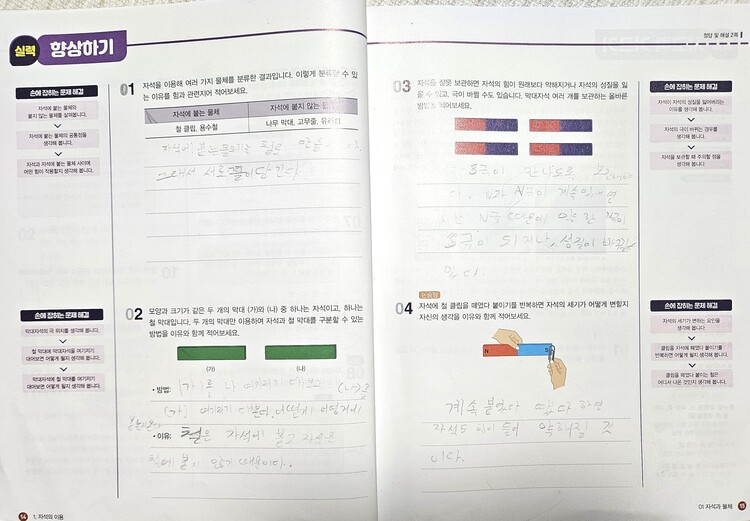 실력 향상하기
손에 잡히는 문제 해결
자석에 붙는 물체와
붙지 않는 물체를 살펴봅니다.
자석에 붙는 물체의 공통점을
생각해 봅니다.
자석과 자석에 붙는 물체 사이에
어떤 힘이 작용할지 생각해 봅니다.
01 자석을 이용해 여러 가지 물체를 분류한 결과입니다. 이렇게 분류할 수 있
는 이유를 힘과 관련지어 적어보세요.
자석에 붙는 물체 자석에 붙지 않는
철 클립, 용수철 나무 막대, 고무줄, 유리컵
자석에 붙는물체는
그래서 서로 당긴다.
손에 잡히는 문제 해결
막대자석의 극 위치를 생각해 봅니다.
철 막대에 막대자석을 여기저기
대어보면 어떻게 될지 생각해 봅니다.
막대자석에 철 막대를 여기저기
대어보면 어떻게 될지 생각해 봅니다.
02 모양과 크기가 같은 두 개의 막대 (가)와 (나) 중 하나는 자석이고, 하나는
철 막대입니다. 두 개의 막대만 이용하여 자석과 철 막대를 구분할 수 있는
방법을 이유와 함께 적어보세요.
(가) (나)
• 방법: (가)를 나 여기저기 대보고 (나)를
(가) 여기저기 대본다.
• 이유: 철은 자석에 붙고 자석은
철에 붙지 않기 때문이다.
14 1. 자석의 이용
정답 및 해설 2쪽
03 자석을 잘못 보관하면 자석의 힘이 원래보다 약해지거나 자석의 성질을 잃
을 수 있고, 극이 바뀔 수도 있습니다. 막대자석 여러 개를 보관하는 올바른
방법을 적어보세요.
S극이 만나도록
다. N과 N극이 계속
N극
S극이 되거나, 성질이
입니다.
손에 잡히는 문제 해결
자석이 자석의 성질을 잃어버리는
이유를 생각해 봅니다.
자석의 극이 바뀌는 경우를
생각해 봅니다.
자석을 보관할 때 주의할 점을
생각해 봅니다.
04 자석에 철 클립을 떼었다 붙이기를 반복하면 자석의 세기가 어떻게 변할지
자신의 생각을 이유와 함께 적어보세요.
N S
계속 붙였다 뗐다 하면
자석도 힘이 들어 약해질 것
이다.
손에 잡히는 문제 해결
자석의 세기가 변하는 요인을
생각해 봅니다.
클립을 자석에 떼었다 붙이기를
반복하면 어떻게 될지 생각해 봅니다.
클립을 떼었다 붙이는 힘은
어디서 나온 것인지 생각해 봅니다.
01 자석과 물체 15